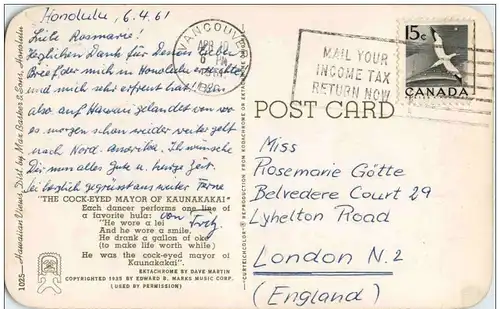 Honolulu, 6.4.61
Liebe Rosmarie!
Herzlichen Dank für Deinen lieben
Brief der mich in Honolulu erreichte
und mich sehr erfreut hat.
also auf Hawaii gelandet von wo
es morgen schon wieder weiter geht
nach Nord. Amerika. Ich wünsche
Dir nun alles Gute u. kurze Zeit.
sei herzlich gegrüsst aus weiter Ferne
von Fritz
"THE COCK-EYED MAYOR OF KAUNAKAKAI"
Each dancer performs one line of
a favorite hula:
"He wore a lei
And he wore a smile,
He drank a gallon of oke
(to make life worth while)
He was the cock-eyed mayor of
Kaunakakai".
EKTACHROME BY DAVE MARTIN
COPYRIGHTED 1935 BY EDWARD B. MARKS MUSIC CORP.
(USED BY PERMISSION)
1025—Hawaiian Views, Dist. by Max Basker & Sons, Honolulu
CURTEICHCOLOR® REPRODUCTION FROM KODACHROME OR EKTACHROME
VANCOUVER
APR 10
PM
MAIL YOUR
INCOME TAX
RETURN NOW
15c
CANADA
POST CARD
Miss
Rosemarie Götte
Belvedere Court 29
Lyhelton Road
London N.2
(England)